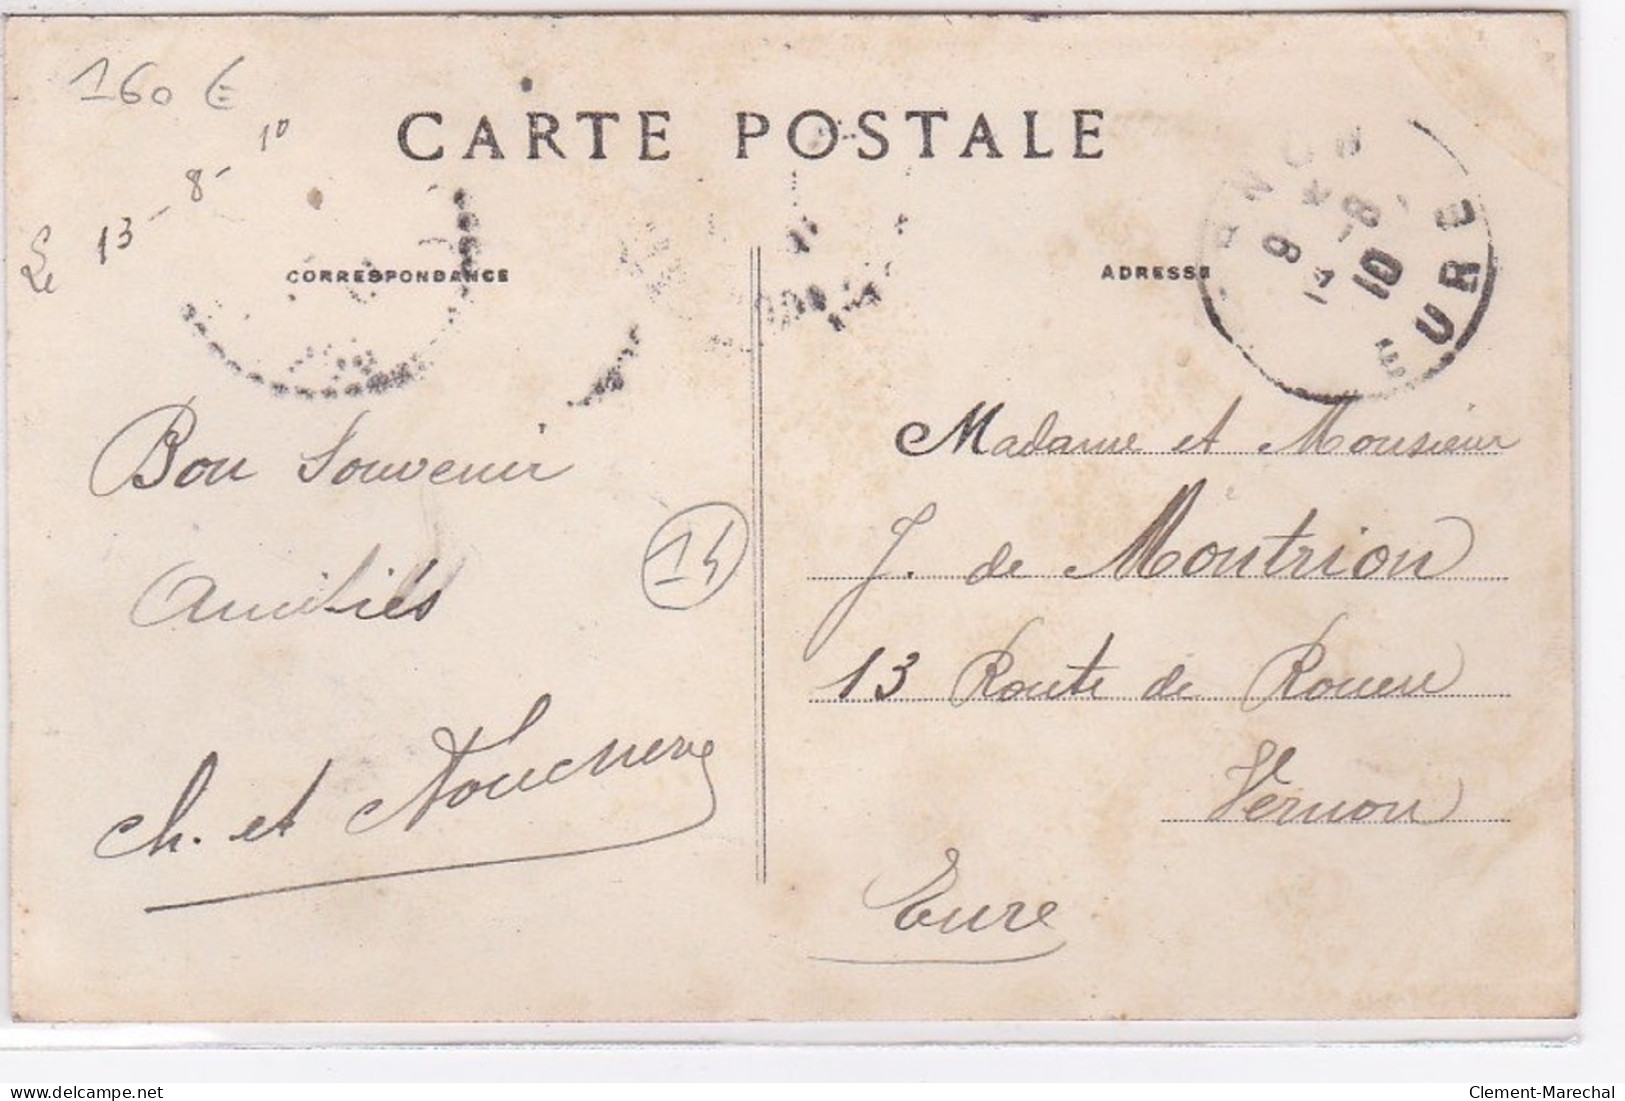 160 €
CARTE POSTALE
Le 13-8-10
CORRESPONDANCE
ADRESSE
URE
10
Bon Souvenir
Amitiés
14
Ch. et
Madame et Monsieur
J. de Montrion
13 Route de Rouen
Vernon
Eure
Delcampe.net
Clement-Marechal